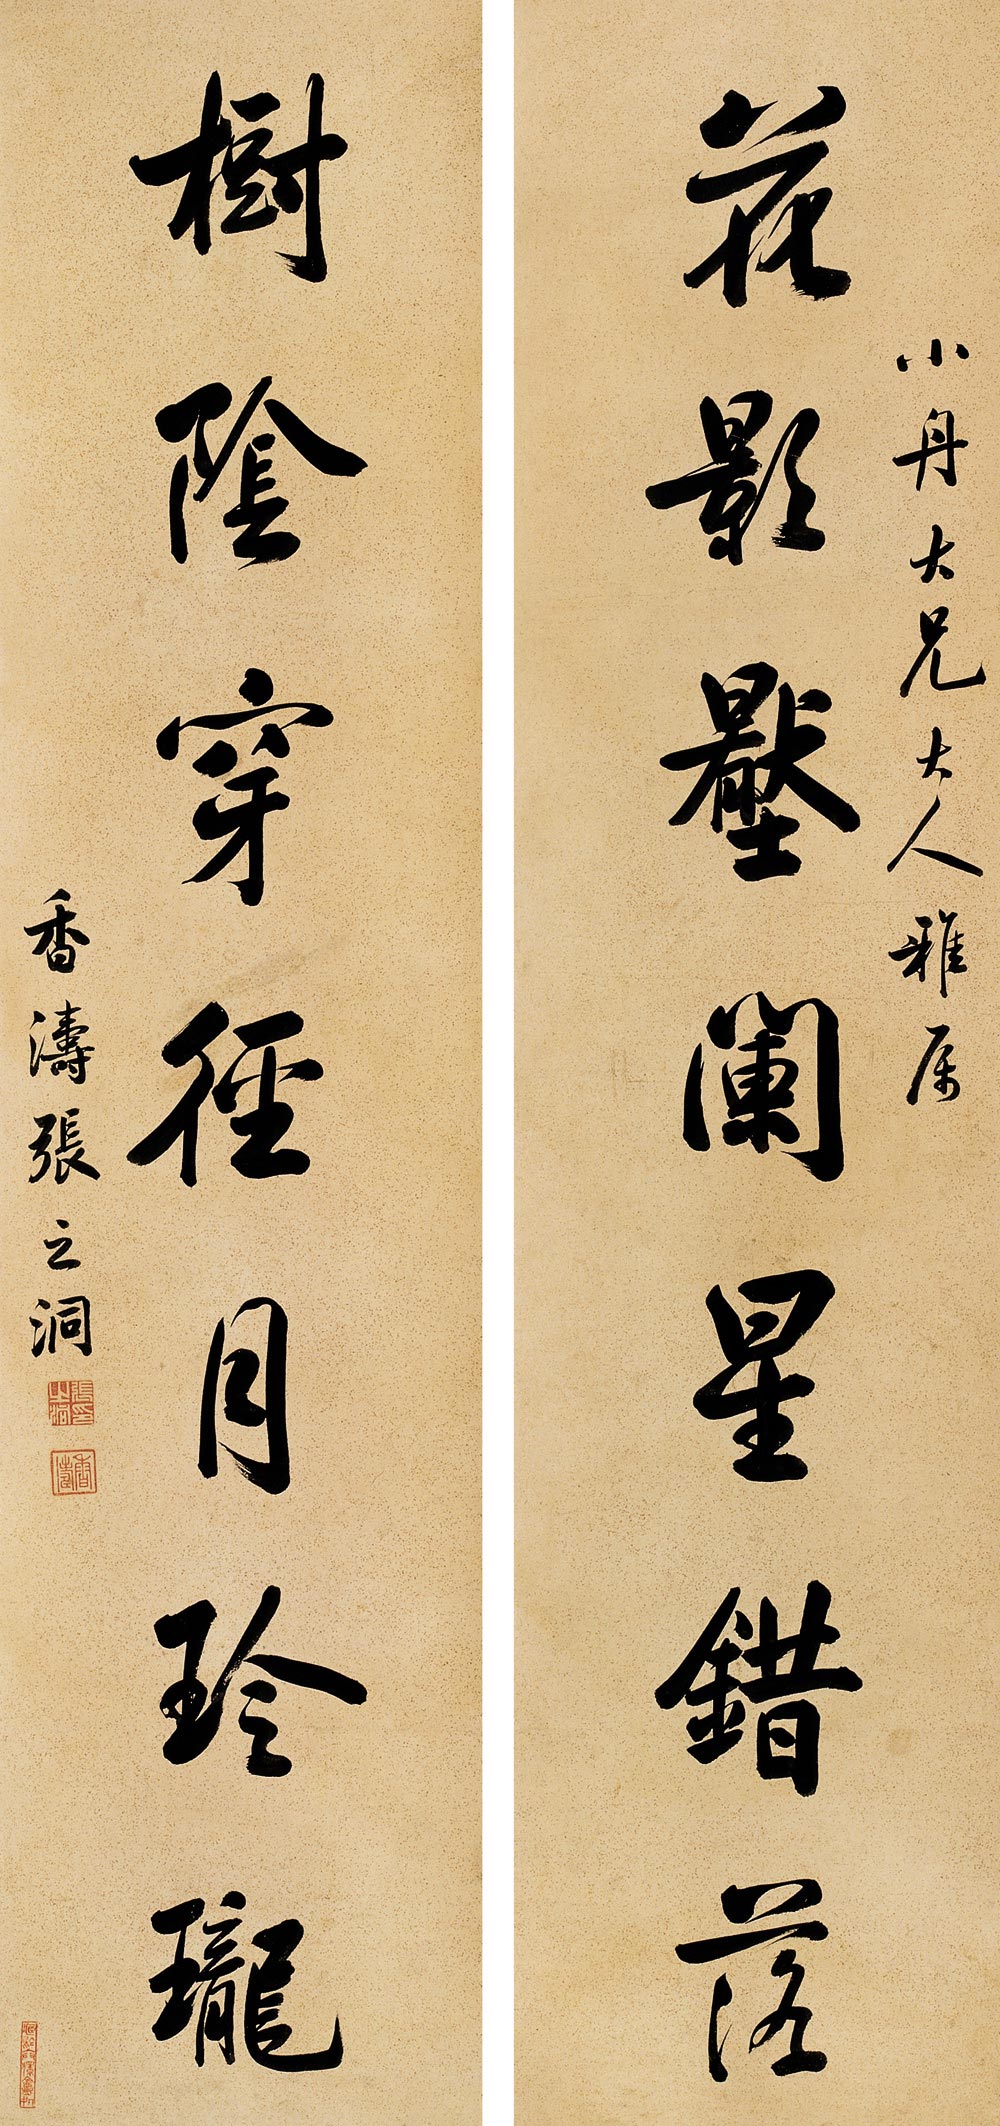 小舟大兄大人雅属
花影壓闌星錯落
樹陰穿徑月玲瓏
香濤張之洞
張印之洞
香濤